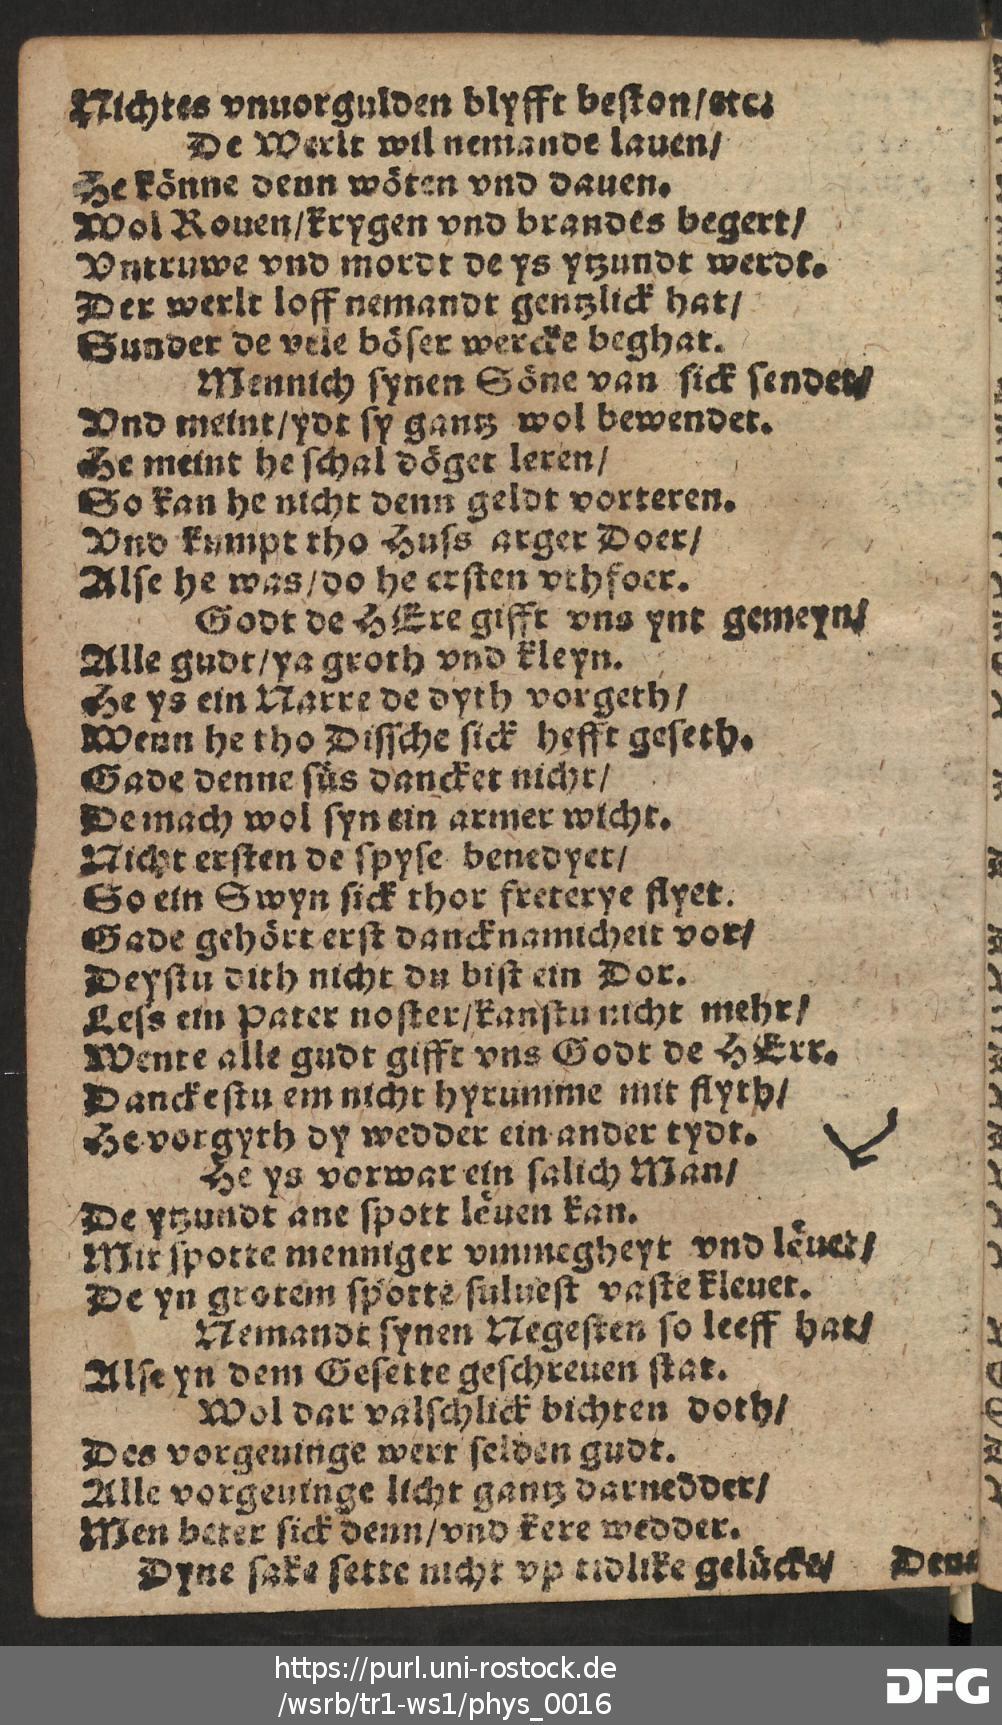 Nichtes vnuorgulden blyfft beston/etc.
De Werlt wil nemande lauen/
He könne denn wöten vnd dauen.
Wol Rouen/krygen vnd brandes begert/
Vntruwe vnd mordt de ys ytzundt werdt.
Der werlt loff nemandt gentzlick hat/
Sunder de vele böser wercke beghat.
Mennich synen Söne van sick sendet/
Vnd meint/ydt sy gantz wol bewendet.
He meint he schal döget leren/
So kan he nicht denn geldt vorteren.
Vnd kumpt tho Huss arger Doer/
Alse he was/do he ersten vthfoer.
Godt de HEre gifft vns ynt gemeyn/
Alle gudt/ya groth vnd kleyn.
He ys ein Narre de dyth vorgeth/
Wenn he tho Dissche sick hefft geseth.
Gade denne süs dancket nicht/
De mach wol syn ein armer wicht.
Nicht ersten de spyse benedyet/
So ein Swyn sick thor freterye flyet.
Gade gehört erst dancknamicheit vor/
Deystu dith nicht du bist ein Dor.
Less ein Pater noster/kanstu nicht mehr/
Wente alle gudt gifft vns Godt de HErr.
Danckestu em nicht hyrumme mit flyth/
He vorgyth dy wedder ein ander tydt.
He ys vorwar ein salich Man/
De ytzundt ane spott lëuen kan.
Mit spotte menniger vmmegheyt vnd lëuet/
De yn grotem spotte suluest vaste kleuet.
Nemandt synen Negesten so leeff hat/
Alse yn dem Gesette geschreuen stat.
Wol dar valschlick bichten doth/
Des vorgeuinge wert selden gudt.
Alle vorgeuinge licht gantz darnedder/
Men beter sick denn/vnd kere wedder.
Dyne sake sette nicht vp tidlike gelücke/ Dene
https://purl.uni-rostock.de
/wsrb/tr1-ws1/phys_0016
DFG